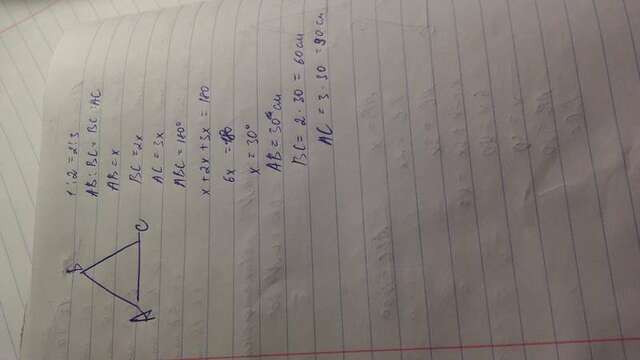 1:2 = 2:3
AB:BC = BC:AC
AB = x
BC = 2x
AC = 3x
ABC = 180°
x + 2x + 3x = 180
6x = 180
x = 30°
AB = 30 см
BC = 2 · 30 = 60 см
AC = 3 · 30 = 90 см
B
A C